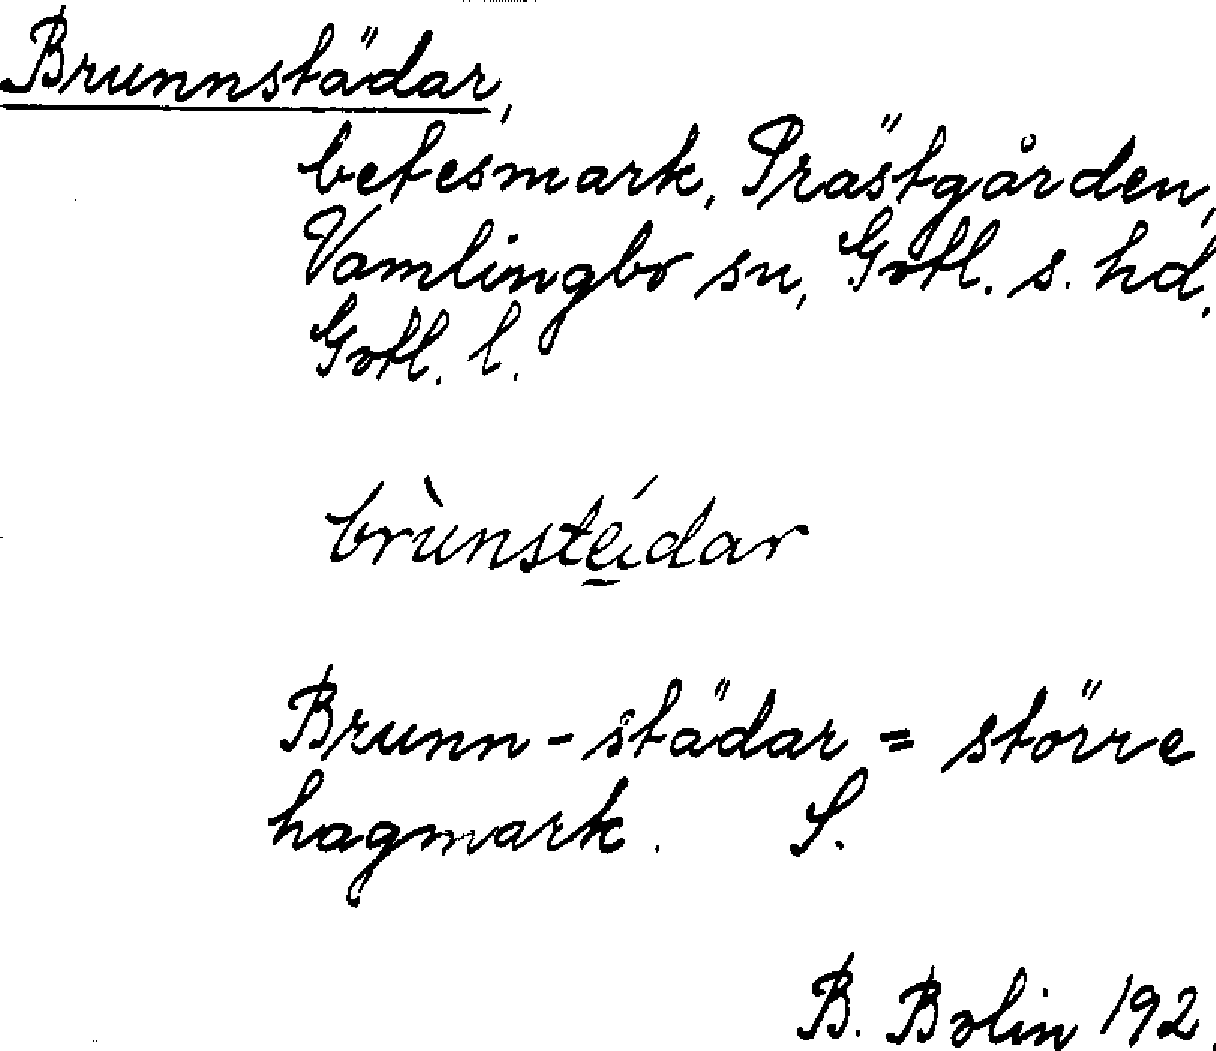 Brunnstädar,
betesmark, Prästgården,
Vamlingbo sn, Gotl. s. hd,
Gotl. l.
brùnsté̲dar
Brunn-städar = större
hagmark. S.
B. Bolin 192